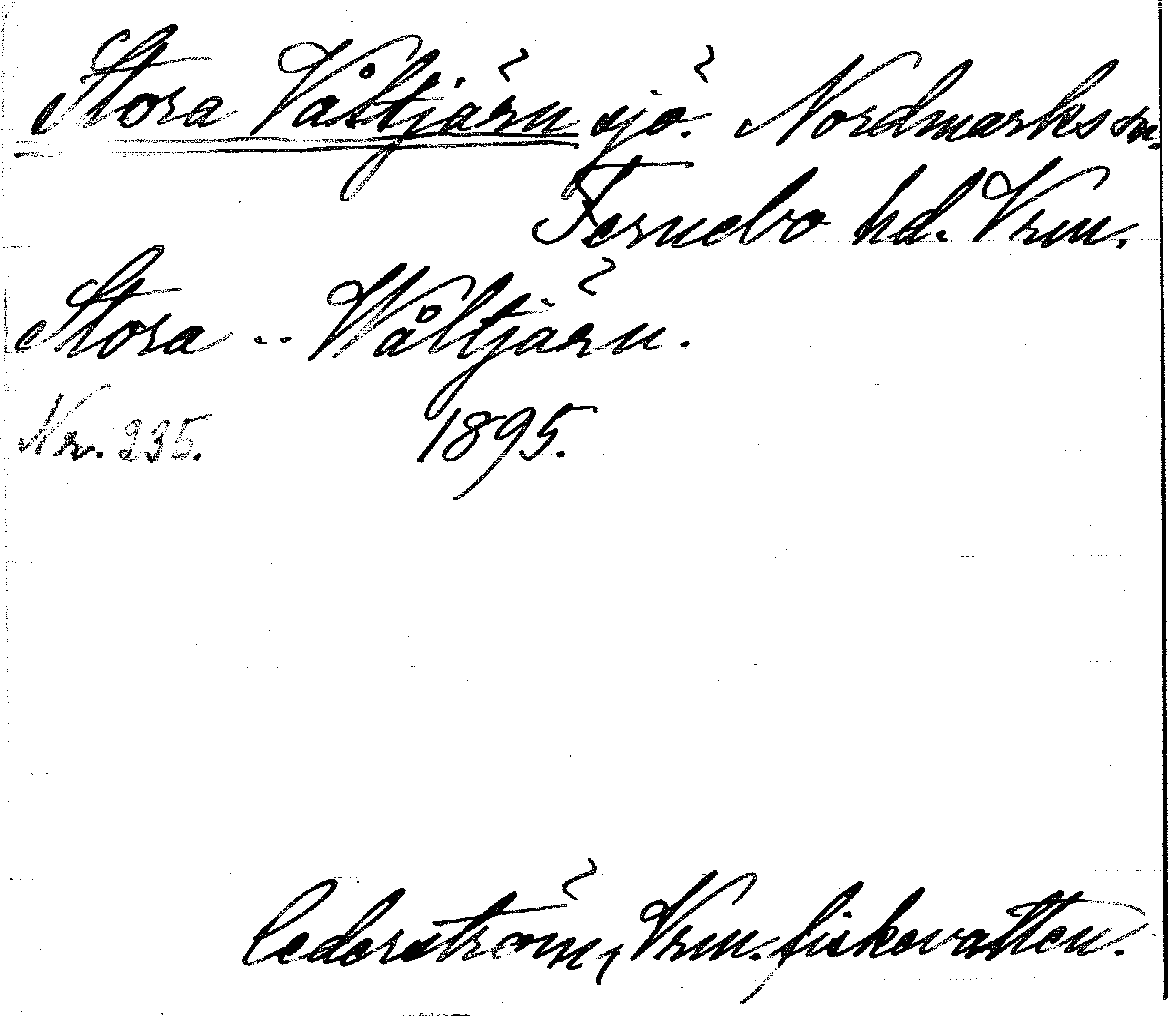 Stora Våltjärn sjö. Nordmarks sn.
Fernebo hd. Vrm.
Stora -- Wåltjärn.
Nr. 235. 1895.
Cederström, Vrm. fiskevatten.